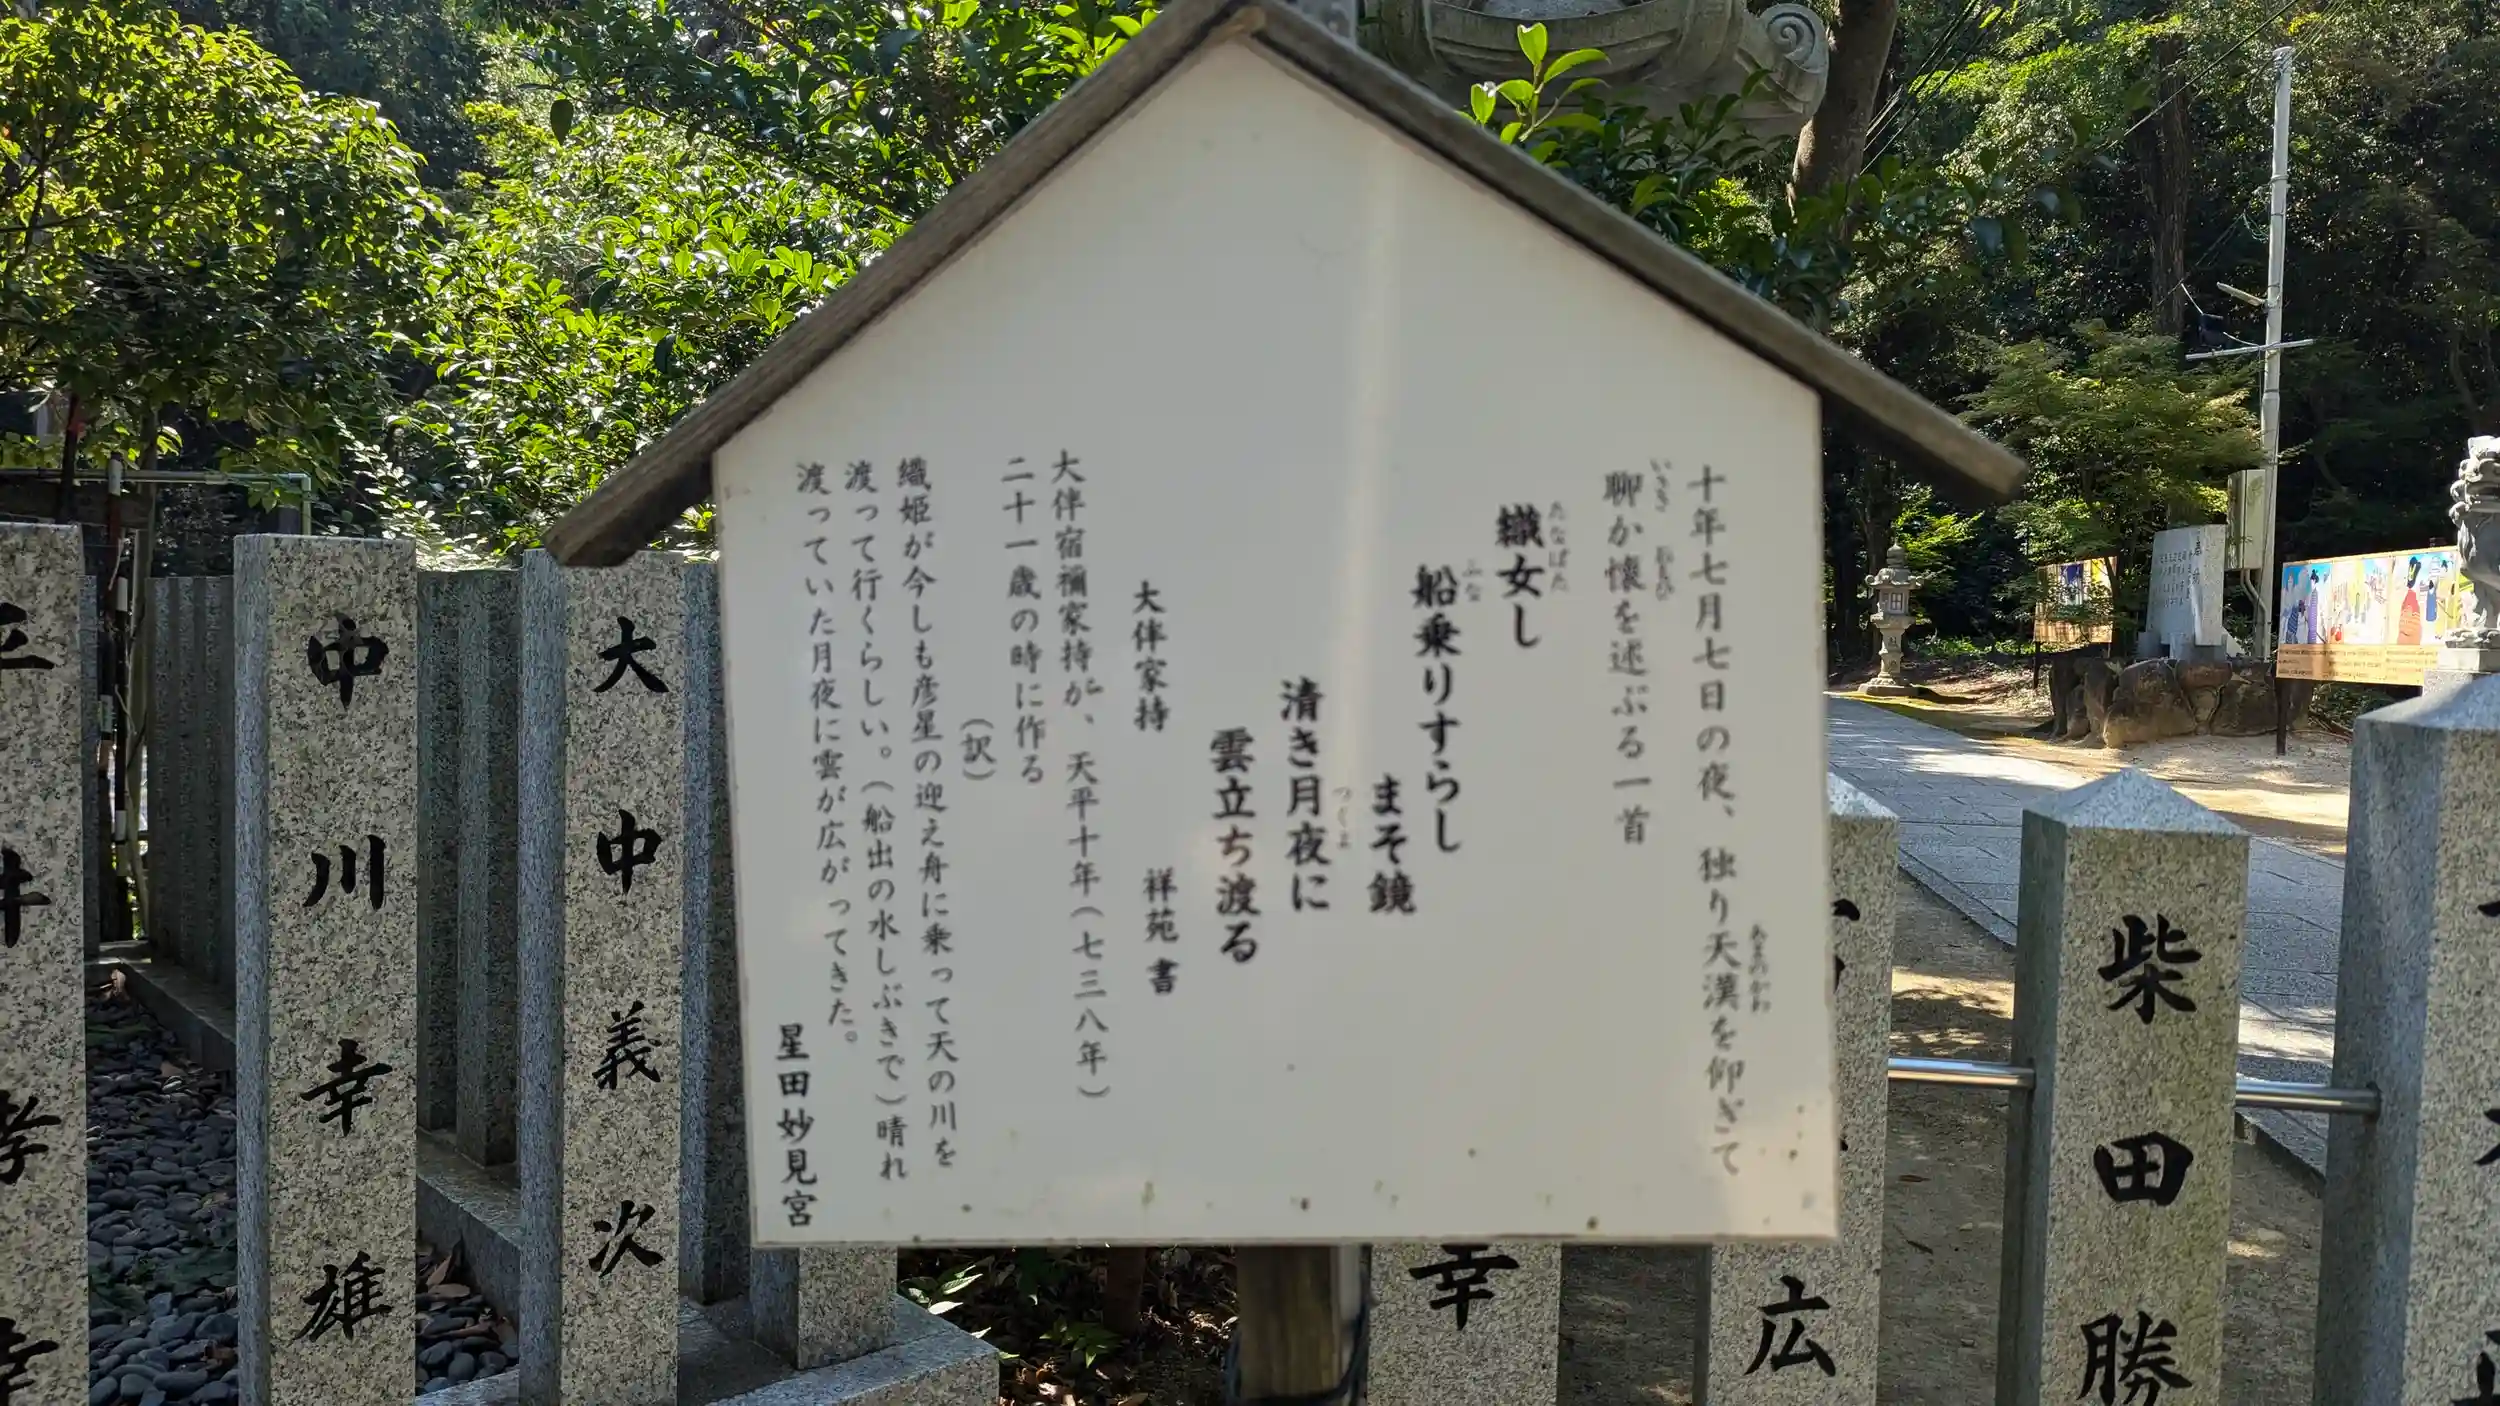 十年七月七日の夜、独り天漢を仰ぎて
あまのかわ
聊か懐を述ぶる一首
いささ おもひ
織女し
たなばた
船乗りすらし
ふな
まそ鏡
清き月夜に
つくよ
雲立ち渡る
大伴家持 祥苑 書
大伴宿禰家持が、天平十年(七三八年)
二十一歳の時に作る
(訳)
織姫が今しも彦星の迎え舟に乗って天の川を
渡って行くらしい。(船出の水しぶきで)晴れ
渡っていた月夜に雲が広がってきた。
星田妙見宮
柴田勝
広
幸
大中義次
中川幸雄
平井孝幸